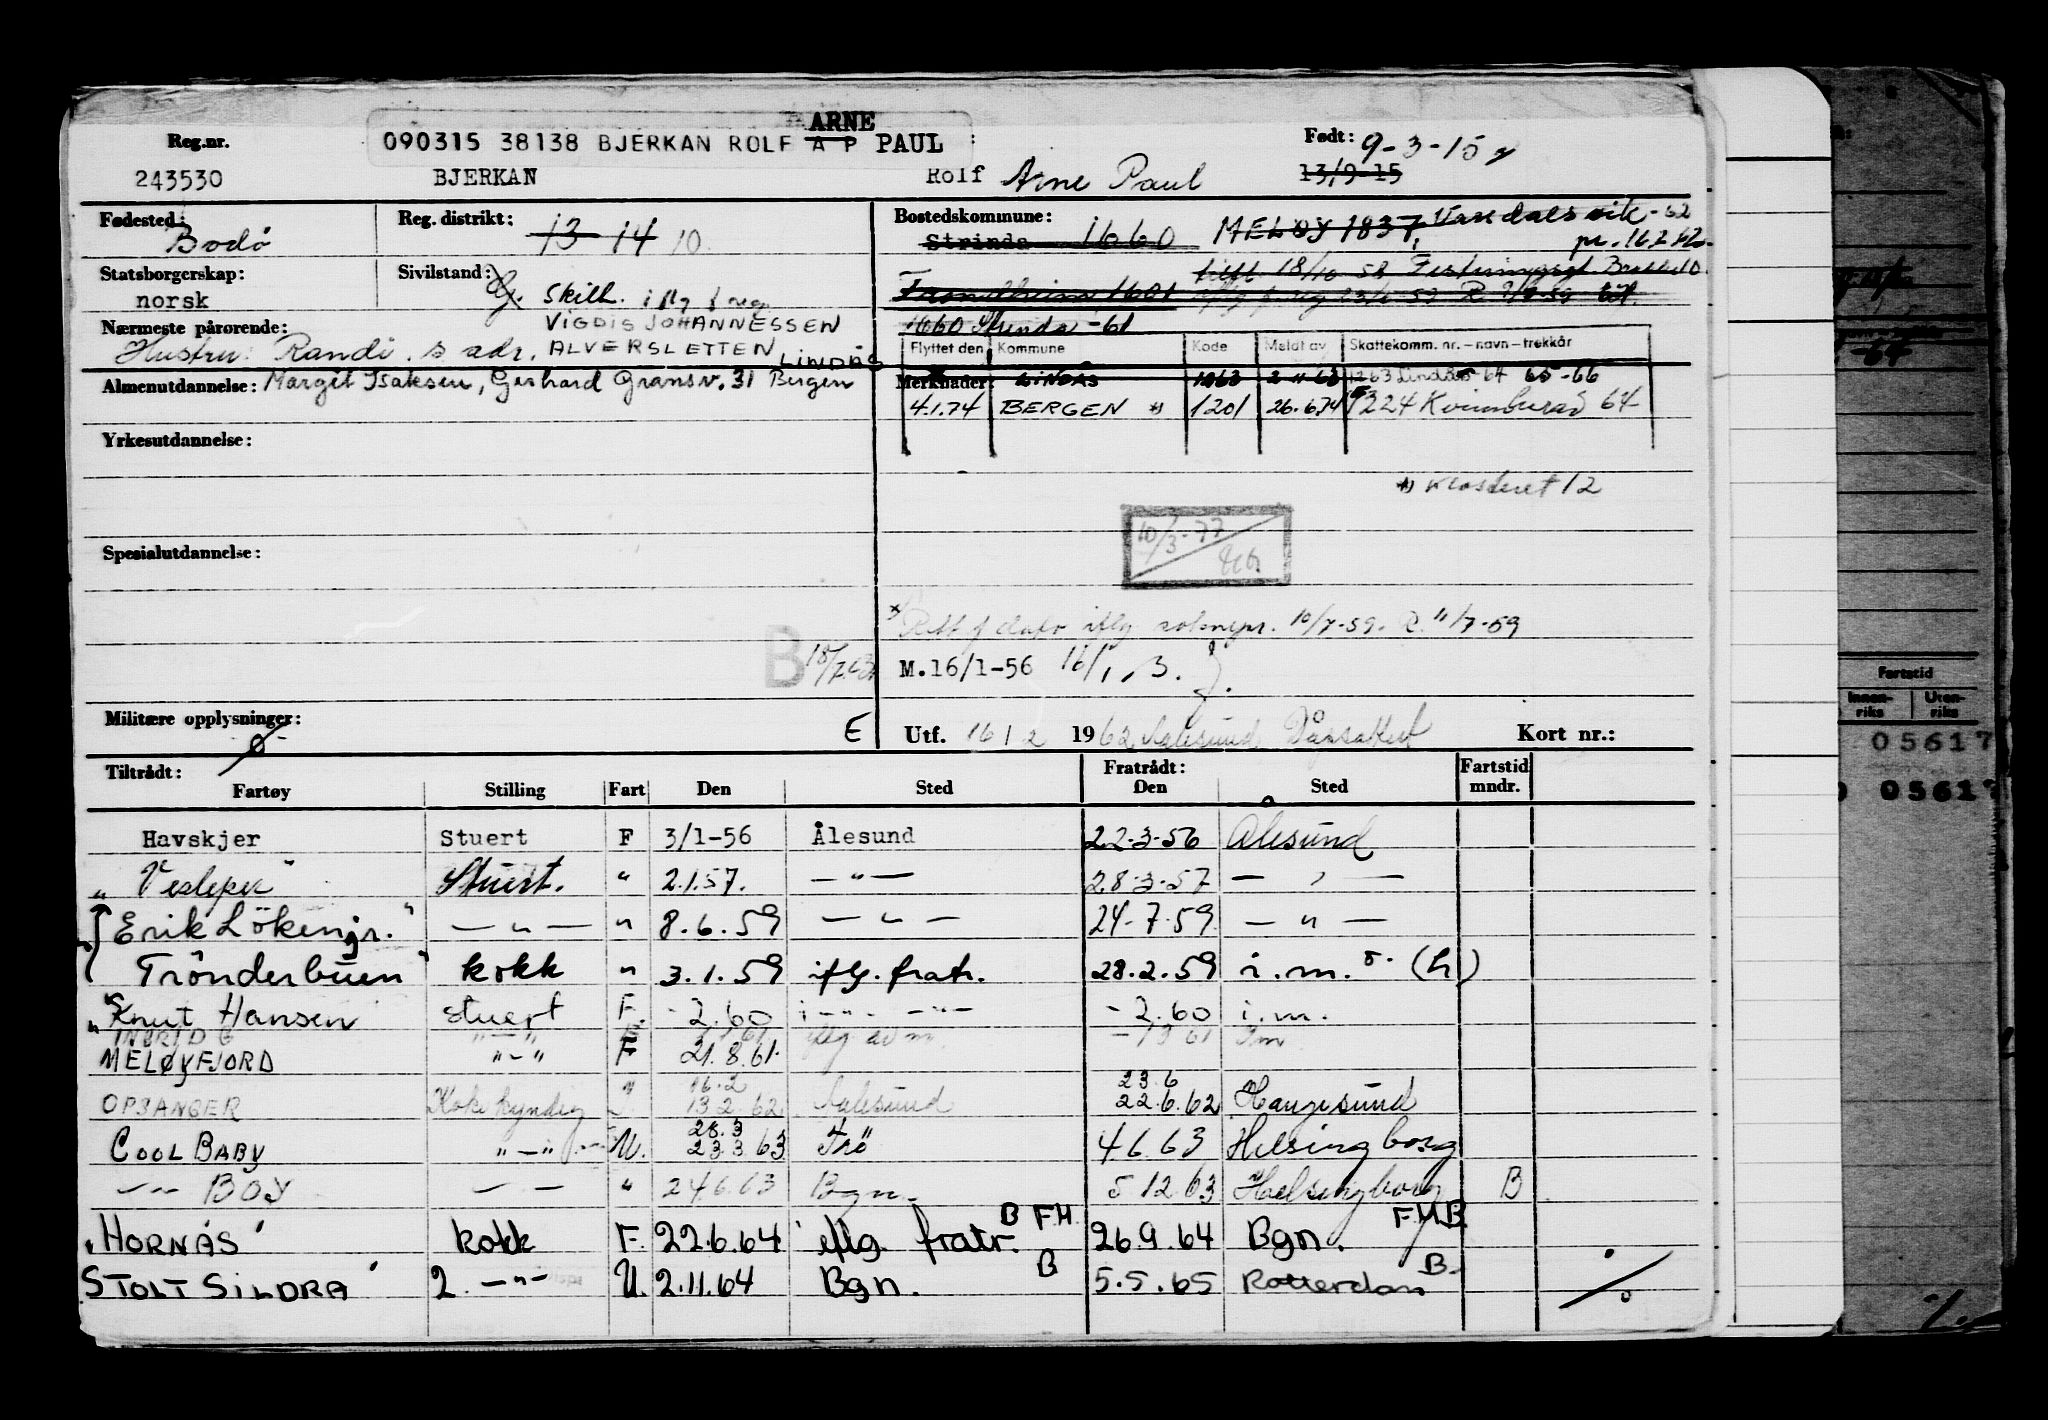 ARNE
Reg.nr. 090315 38138 BJERKAN ROLF A P PAUL Født: 9-3-15
243530 BJERKAN Rolf Arne Paul 13/9-15
Fødested: Bodö Reg. distrikt: 13 14 10. Bostedskommune: Strinda 1660 MELØY 1837, -62
Statsborgerskap: norsk Sivilstand: Skilt. iflg f reg Trondheim 1601
1660 Strinda -61
Nærmeste pårørende: VIGDIS JOHANNESSEN
Hustru: Randi. s adr. ALVERSLETTEN LINDÅS
Flyttet den Kommune Kode Meldt av Skattekomm. nr. – navn – trekkår
Almenutdannelse: Margit Isaksen, Gerhard Gransv. 31 Bergen
Merknader: LINDÅS 1263 2 11 63 1263 Lindås 64 65-66
4.1.74 BERGEN *) 1201 26.6.74 1224 Kvinnherad 64
Yrkesutdannelse:
*) Klosteret 12
10/3-77
Spesialutdannelse:
* Rett f dato iflg 10/7-59. R. 11/7-59
B 18/7-63 M.16/1-56 16/1
Militære opplysninger: Ø E Utf. 16/2 1962 Aalesund Kort nr.:
Tiltrådt: Fratrådt: Fartstid
Fartøy Stilling Fart Den Sted Den Sted mndr.
Havskjer Stuert F 3/1-56 Ålesund 22-3-56 Ålesund
" Vesleper " Stuert. " 2.1.57. — " — 28-3-57 — " —
Erik Löken jr. " — " — " 8.6.59 — " — 24-7-59 — " —
Trönderbuen " kokk " 3.1.59 iflg. fratr. 28.2.59 i.m. (h)
" Knut Hansen stuert F. - 2.60 i - " - - " - - 2.60 i.m.
INGRID G " - " iflg av m. 61 Im
MELØYFJORD " - " F 21.8.61
OPSANGER Kokk kyndig 16.2 13 2 62 Aalesund 23 6 22.6.62 Haugesund
COOL BABY " - " U. 28.3 23 3 63 4 6 63 Helsingborg
— " — BOY — " — " 24 6 63 Bgn. 5 12 63 Helsingborg B
" HORNÅS " kokk F. 22.6.64 iflg. fratr. B FH 26.9.64 Bgn. FHB
STOLT SILDRA " 2. — " — U. 2.11.64 Bgn. B 5.5.65 Rotterdam B.
Fartstid
Innen-riks Uten-riks
05617
05617